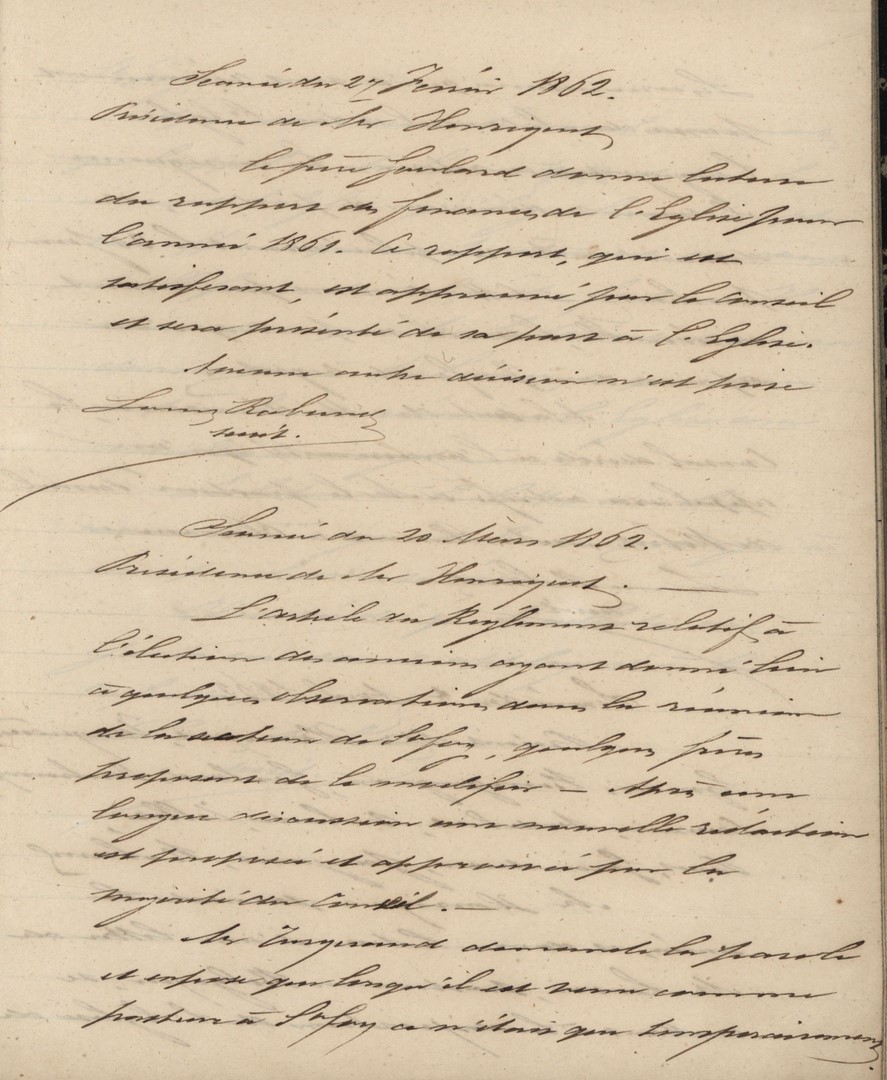 Séance du 27 Février 1862.
Présidence de Mr Henriquet
Le frère Goulard donne lecture
du rapport des finances de l'Eglise pour
l'année 1861. Ce rapport, qui est
satisfesant, est approuvé par le Conseil
et sera présenté de sa part à l'Eglise.
Aucune autre décision n'est prise
Louis
secret.
Séance du 20 Mars 1862.
Présidence de Mr Henriquet.
L'article du Règlement relatif à
l'élection des anciens ayant donné lieu
à quelques observations dans la réunion
de la section de Ste foy, quelques frères
proposent de le modifier — Après une
longue discussion une nouvelle rédaction
est proposée et approuvée par la
majorité du Conseil. —
Mr demande la parole
et expose que lorsqu'il est venu comme
pasteur à Ste foy ce n'était que temporairement